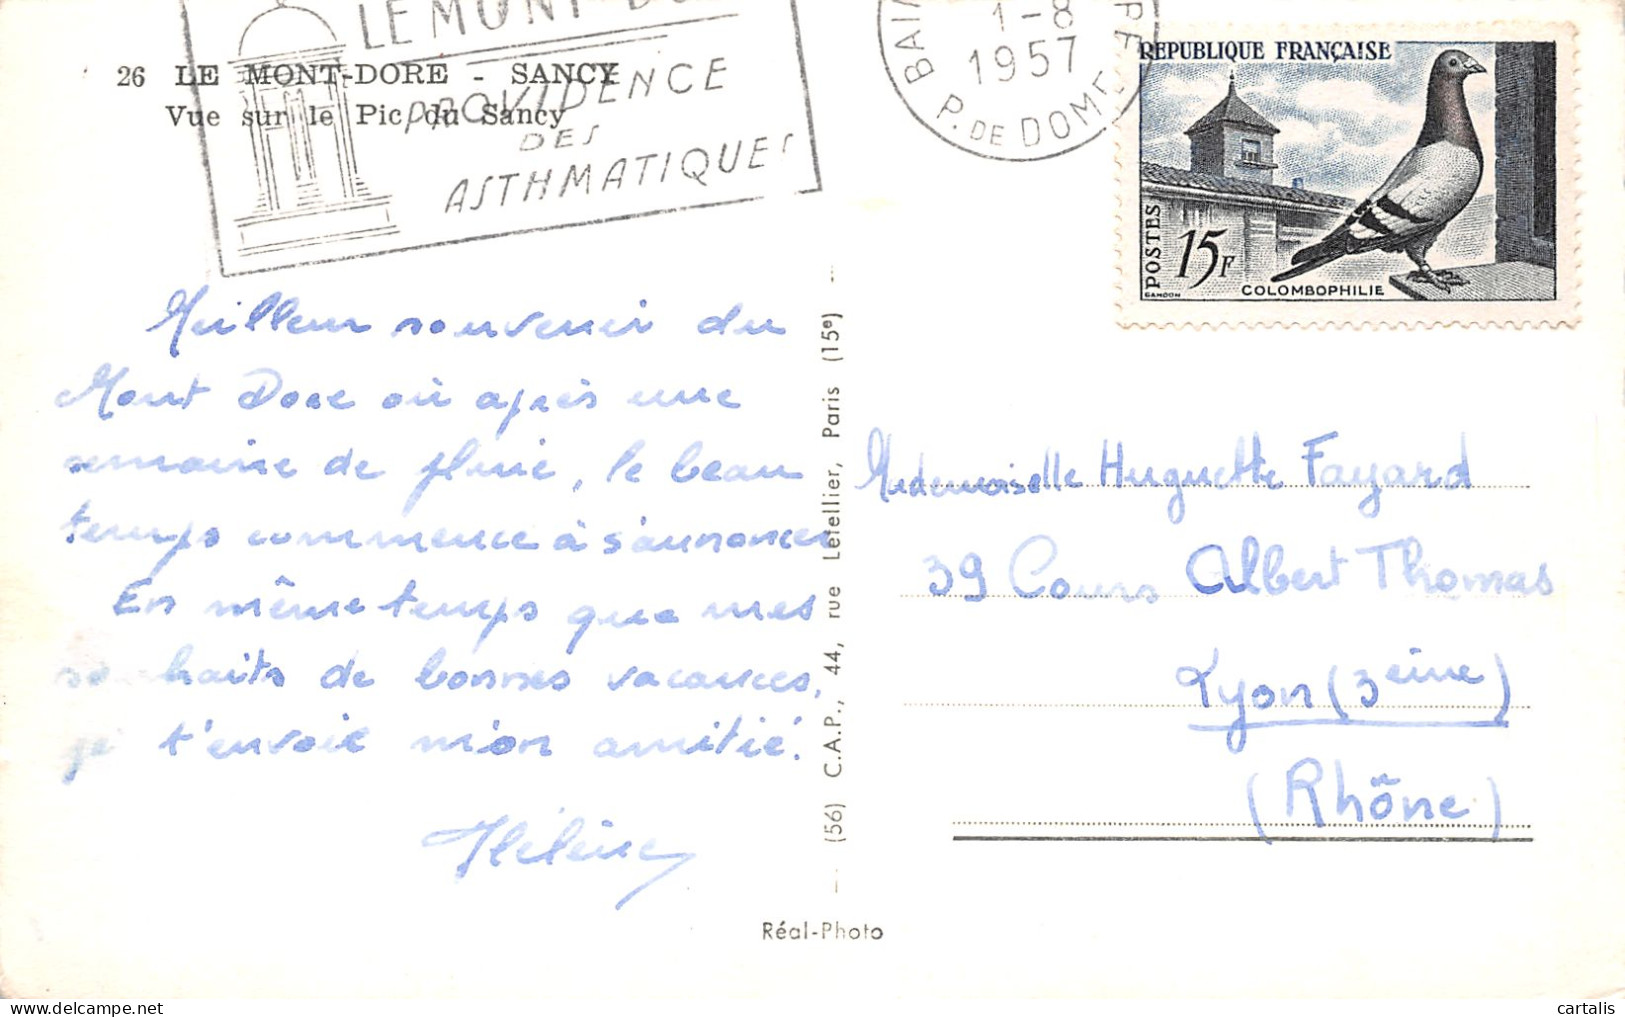 LE MONT-DO
PROVIDENCE
DES
ASTHMATIQUES
26 LE MONT-DORE - SANCY
Vue sur le Pic du Sancy
1-8
1957
P. DE DOME
REPUBLIQUE FRANÇAISE
POSTES
15F
GANDON
COLOMBOPHILIE
Meilleur souvenir du
Mont Dore où après une
semaine de pluie, le beau
temps commence à s'annoncer
En même temps que mes
souhaits de bonnes vacances,
je t'envoie mon amitié.
Hélène
(56) C.A.P., 44, rue Letellier, Paris (15e)
Réal-Photo
Mademoiselle Huguette Fayard
39 Cours Albert Thomas
Lyon (3eime)
(Rhône)
cartalis